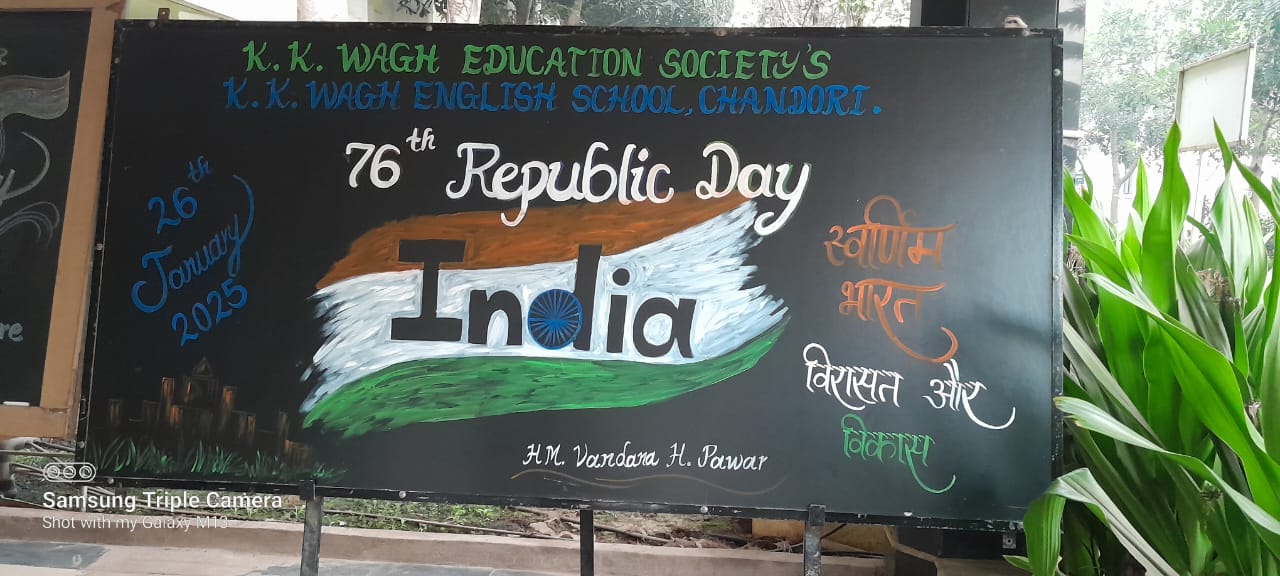 K. K. WAGH EDUCATION SOCIETY'S
K. K. WAGH ENGLISH SCHOOL, CHANDORI.
76th Republic Day
26th
January
2025
India
स्वर्णिम
भारत
विरासत और
विकास
HM. Vandana H. Pawar
re
Samsung Triple Camera
Shot with my Galaxy M13